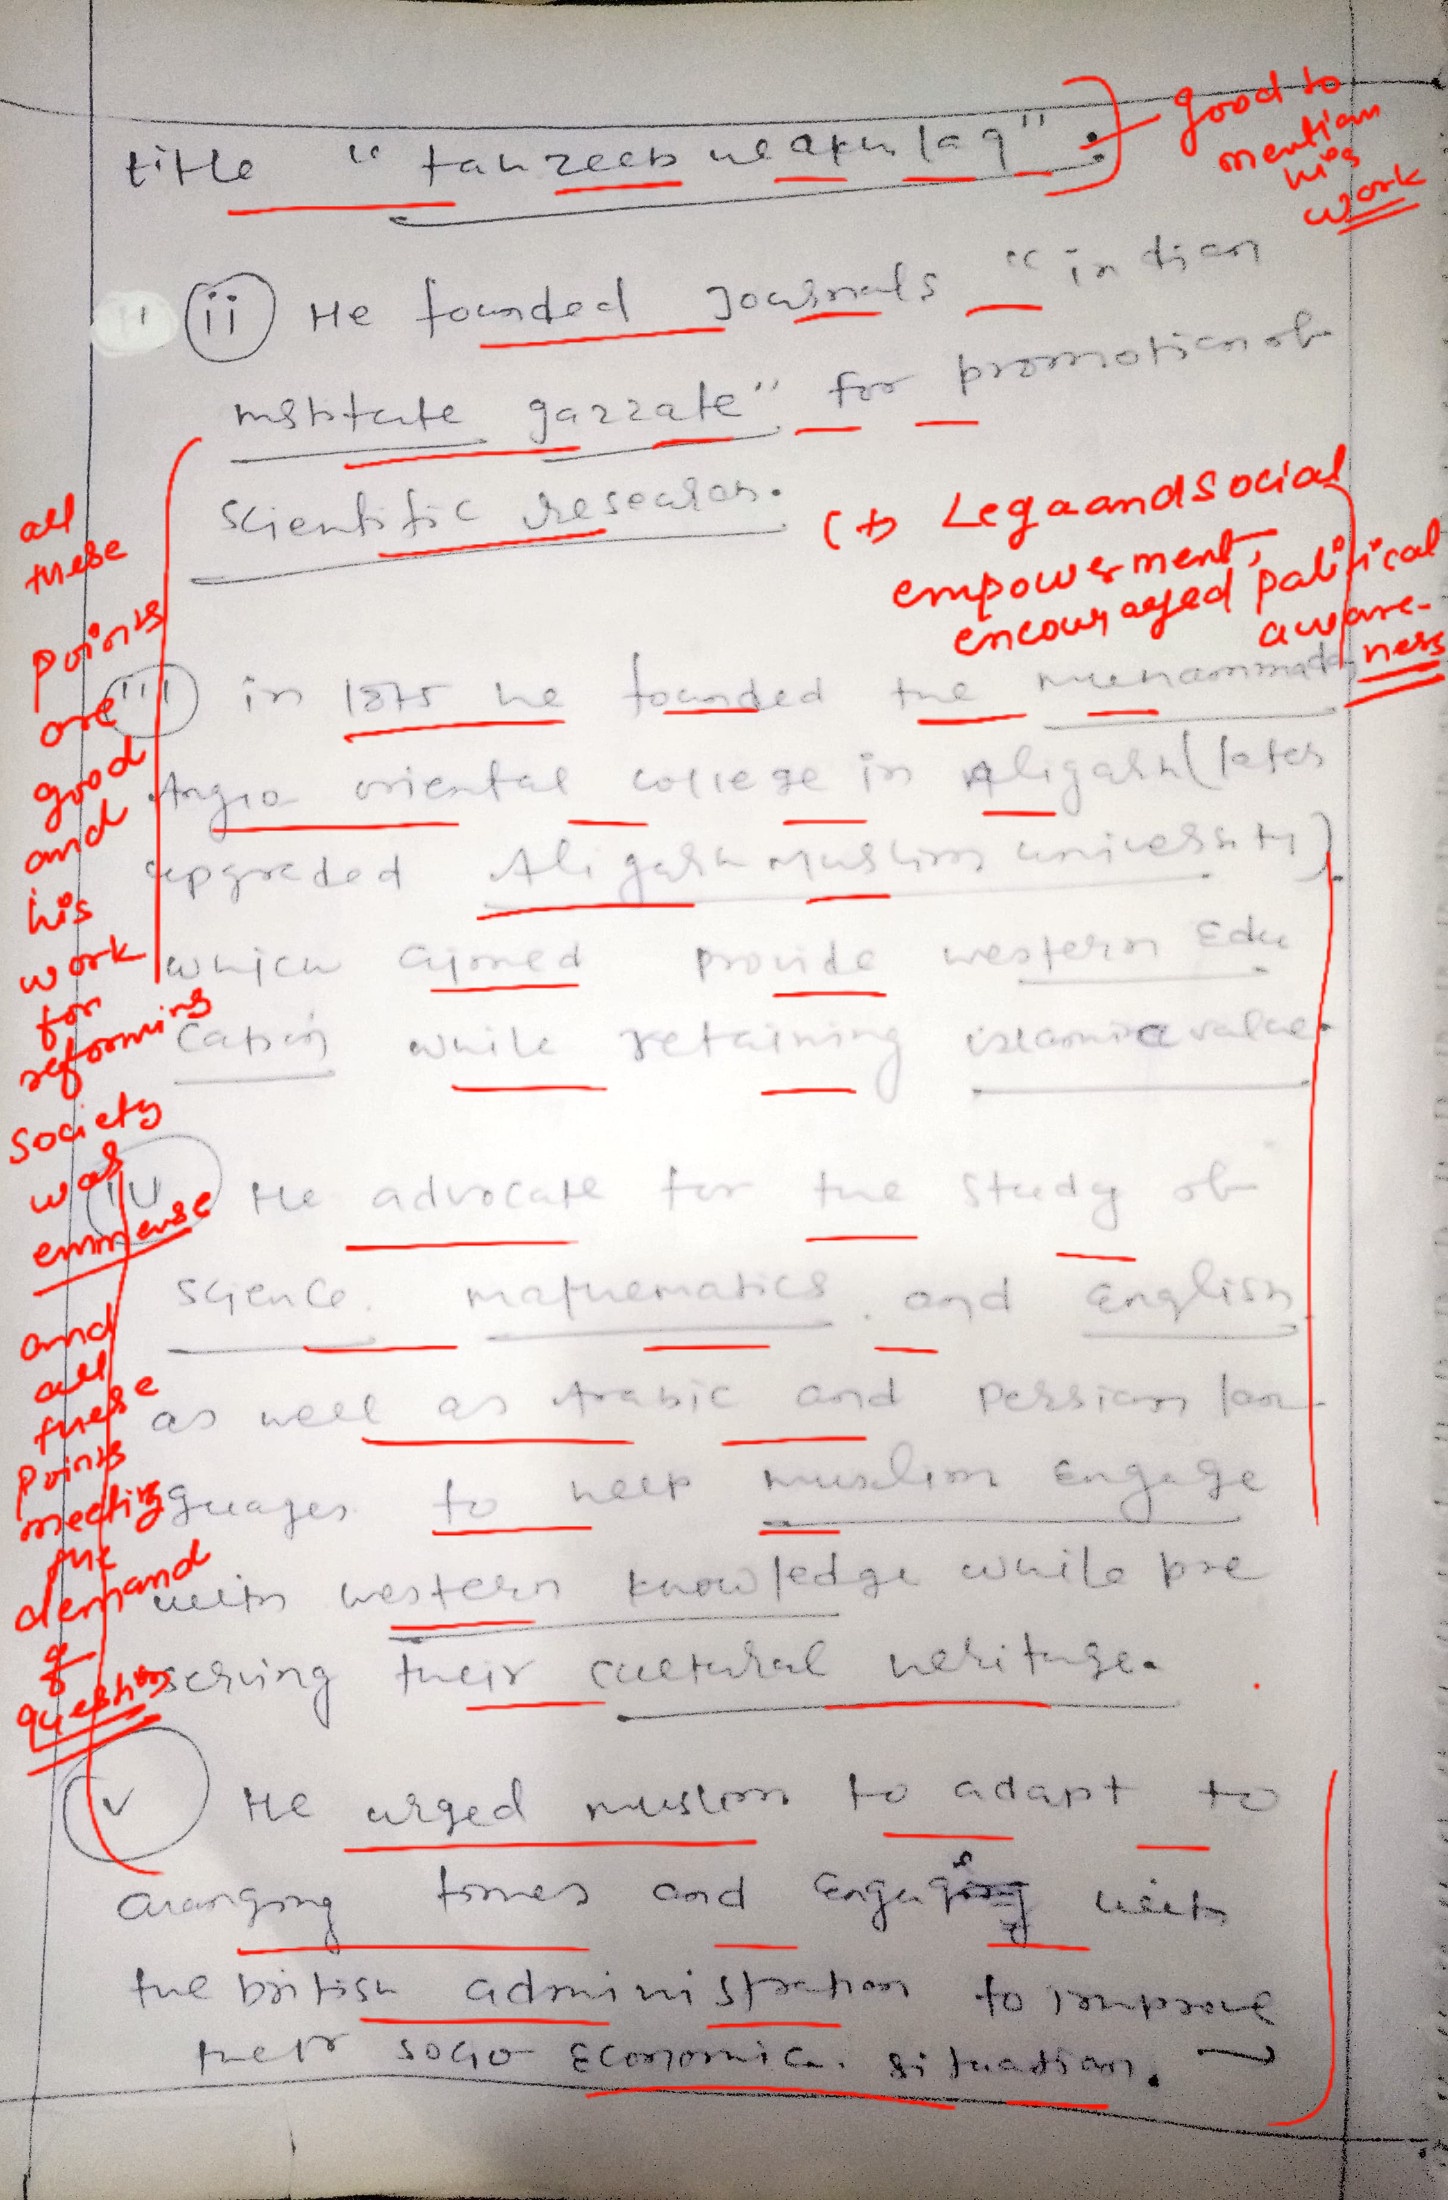 title "tahzeeb ul akhlaq".
good to
mention
his
work
(ii) He founded Journals "indian
institute gazzate" for promotion of
scientific research.
(+) Legal and Social
empowerment,
encouraged political
aware-
ness
(iii) in 1875 he founded the muhammad
Anglo oriental college in Aligarh (later
upgraded Aligarh Muslim university).
which aimed provide western Edu
cation while retaining islamic value.
(iv) He advocate for the study of
science, mathematics, and English
as well as Arabic and Persian lan
guages to help muslim engage
with western knowledge while pre
serving their cultural heritage.
(v) He urged muslim to adapt to
changing times and engaging with
the british administration to improve
their socio economic. situation.
all
these
points
are
good
and
his
work
for
reforming
society
was
emmense
and
all
these
points
meeting
the
demand
of
question